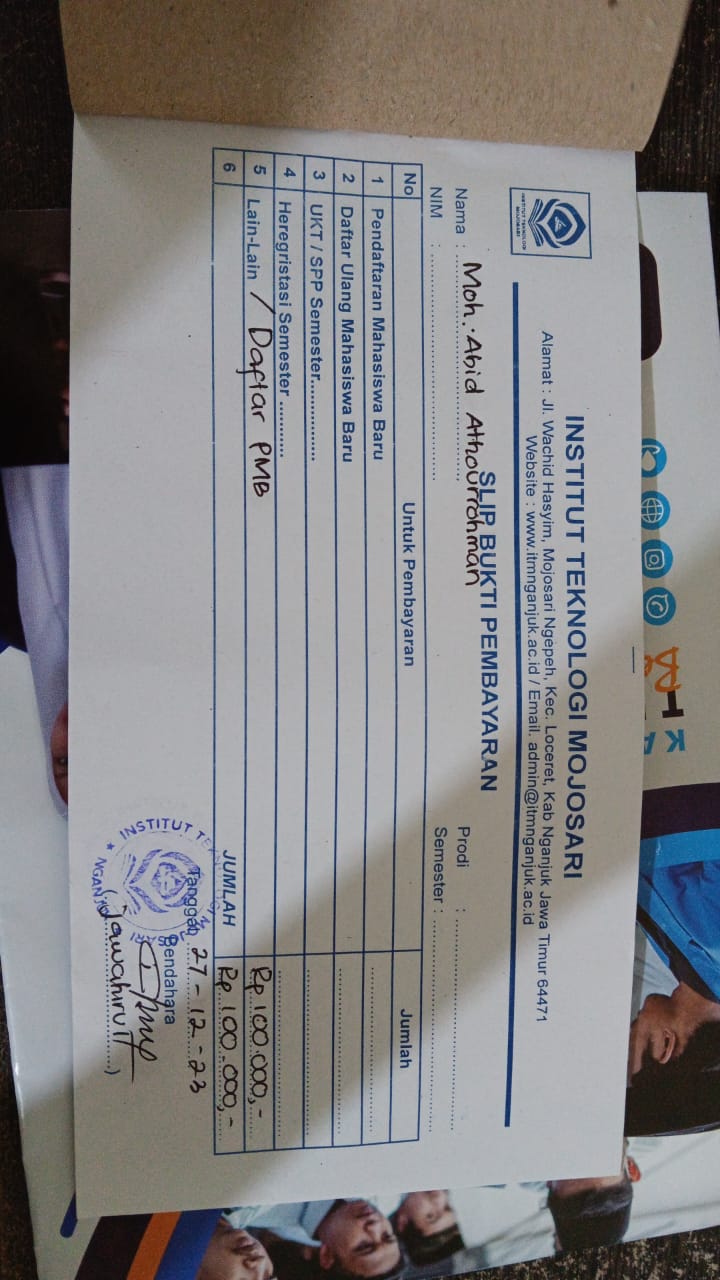 INSTITUT TEKNOLOGI
MOJOSARI
INSTITUT TEKNOLOGI MOJOSARI
Alamat : Jl. Wachid Hasyim, Mojosari Ngepeh, Kec. Loceret, Kab Nganjuk Jawa Timur 64471
Website : www.itmnganjuk.ac.id / Email. admin@itmnganjuk.ac.id
SLIP BUKTI PEMBAYARAN
Nama : Moh. Abid Athourrohman
Prodi :
NIM :
Semester :
No Untuk Pembayaran Jumlah
1 Pendaftaran Mahasiswa Baru
2 Daftar Ulang Mahasiswa Baru
3 UKT / SPP Semester...............
4 Heregristasi Semester ............
5 Lain-Lain / Daftar PMB Rp 100.000,-
6 JUMLAH Rp 100.000,-
Tanggal 27 - 12 - 23
Bendahara
INSTITUT
NGANJUK